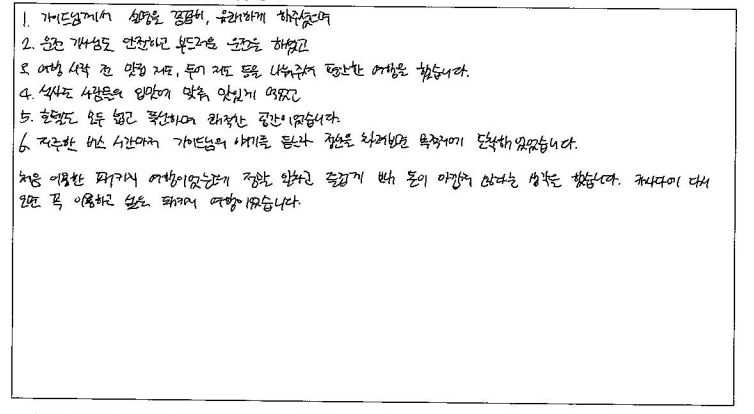 1. 가이드님께서 설명을 꼼꼼히, 유쾌하게 해주셨으며
2. 운전 기사님도 안전하고 부드러운 운전을 하셨고
3. 여행 시작 전 맛집 지도, 투어 지도 등을 나눠주셔서 편안한 여행을 했습니다.
4. 식사도 사람들의 입맛에 맞춰 맛있게 먹었고
5. 호텔도 모두 넓고 푹신하며 쾌적한 공간이었습니다.
6. 지루한 버스 시간마저 가이드님의 얘기를 듣느라 정신을 차려보면 목적지에 도착해 있었습니다.
처음 이용한 패키지 여행이었는데 정말 알차고 즐겁게 돈이 아깝지 않다는 생각을 했습니다. 캐나다에 다시
오면 꼭 이용하고 싶은 패키지 여행이었습니다.